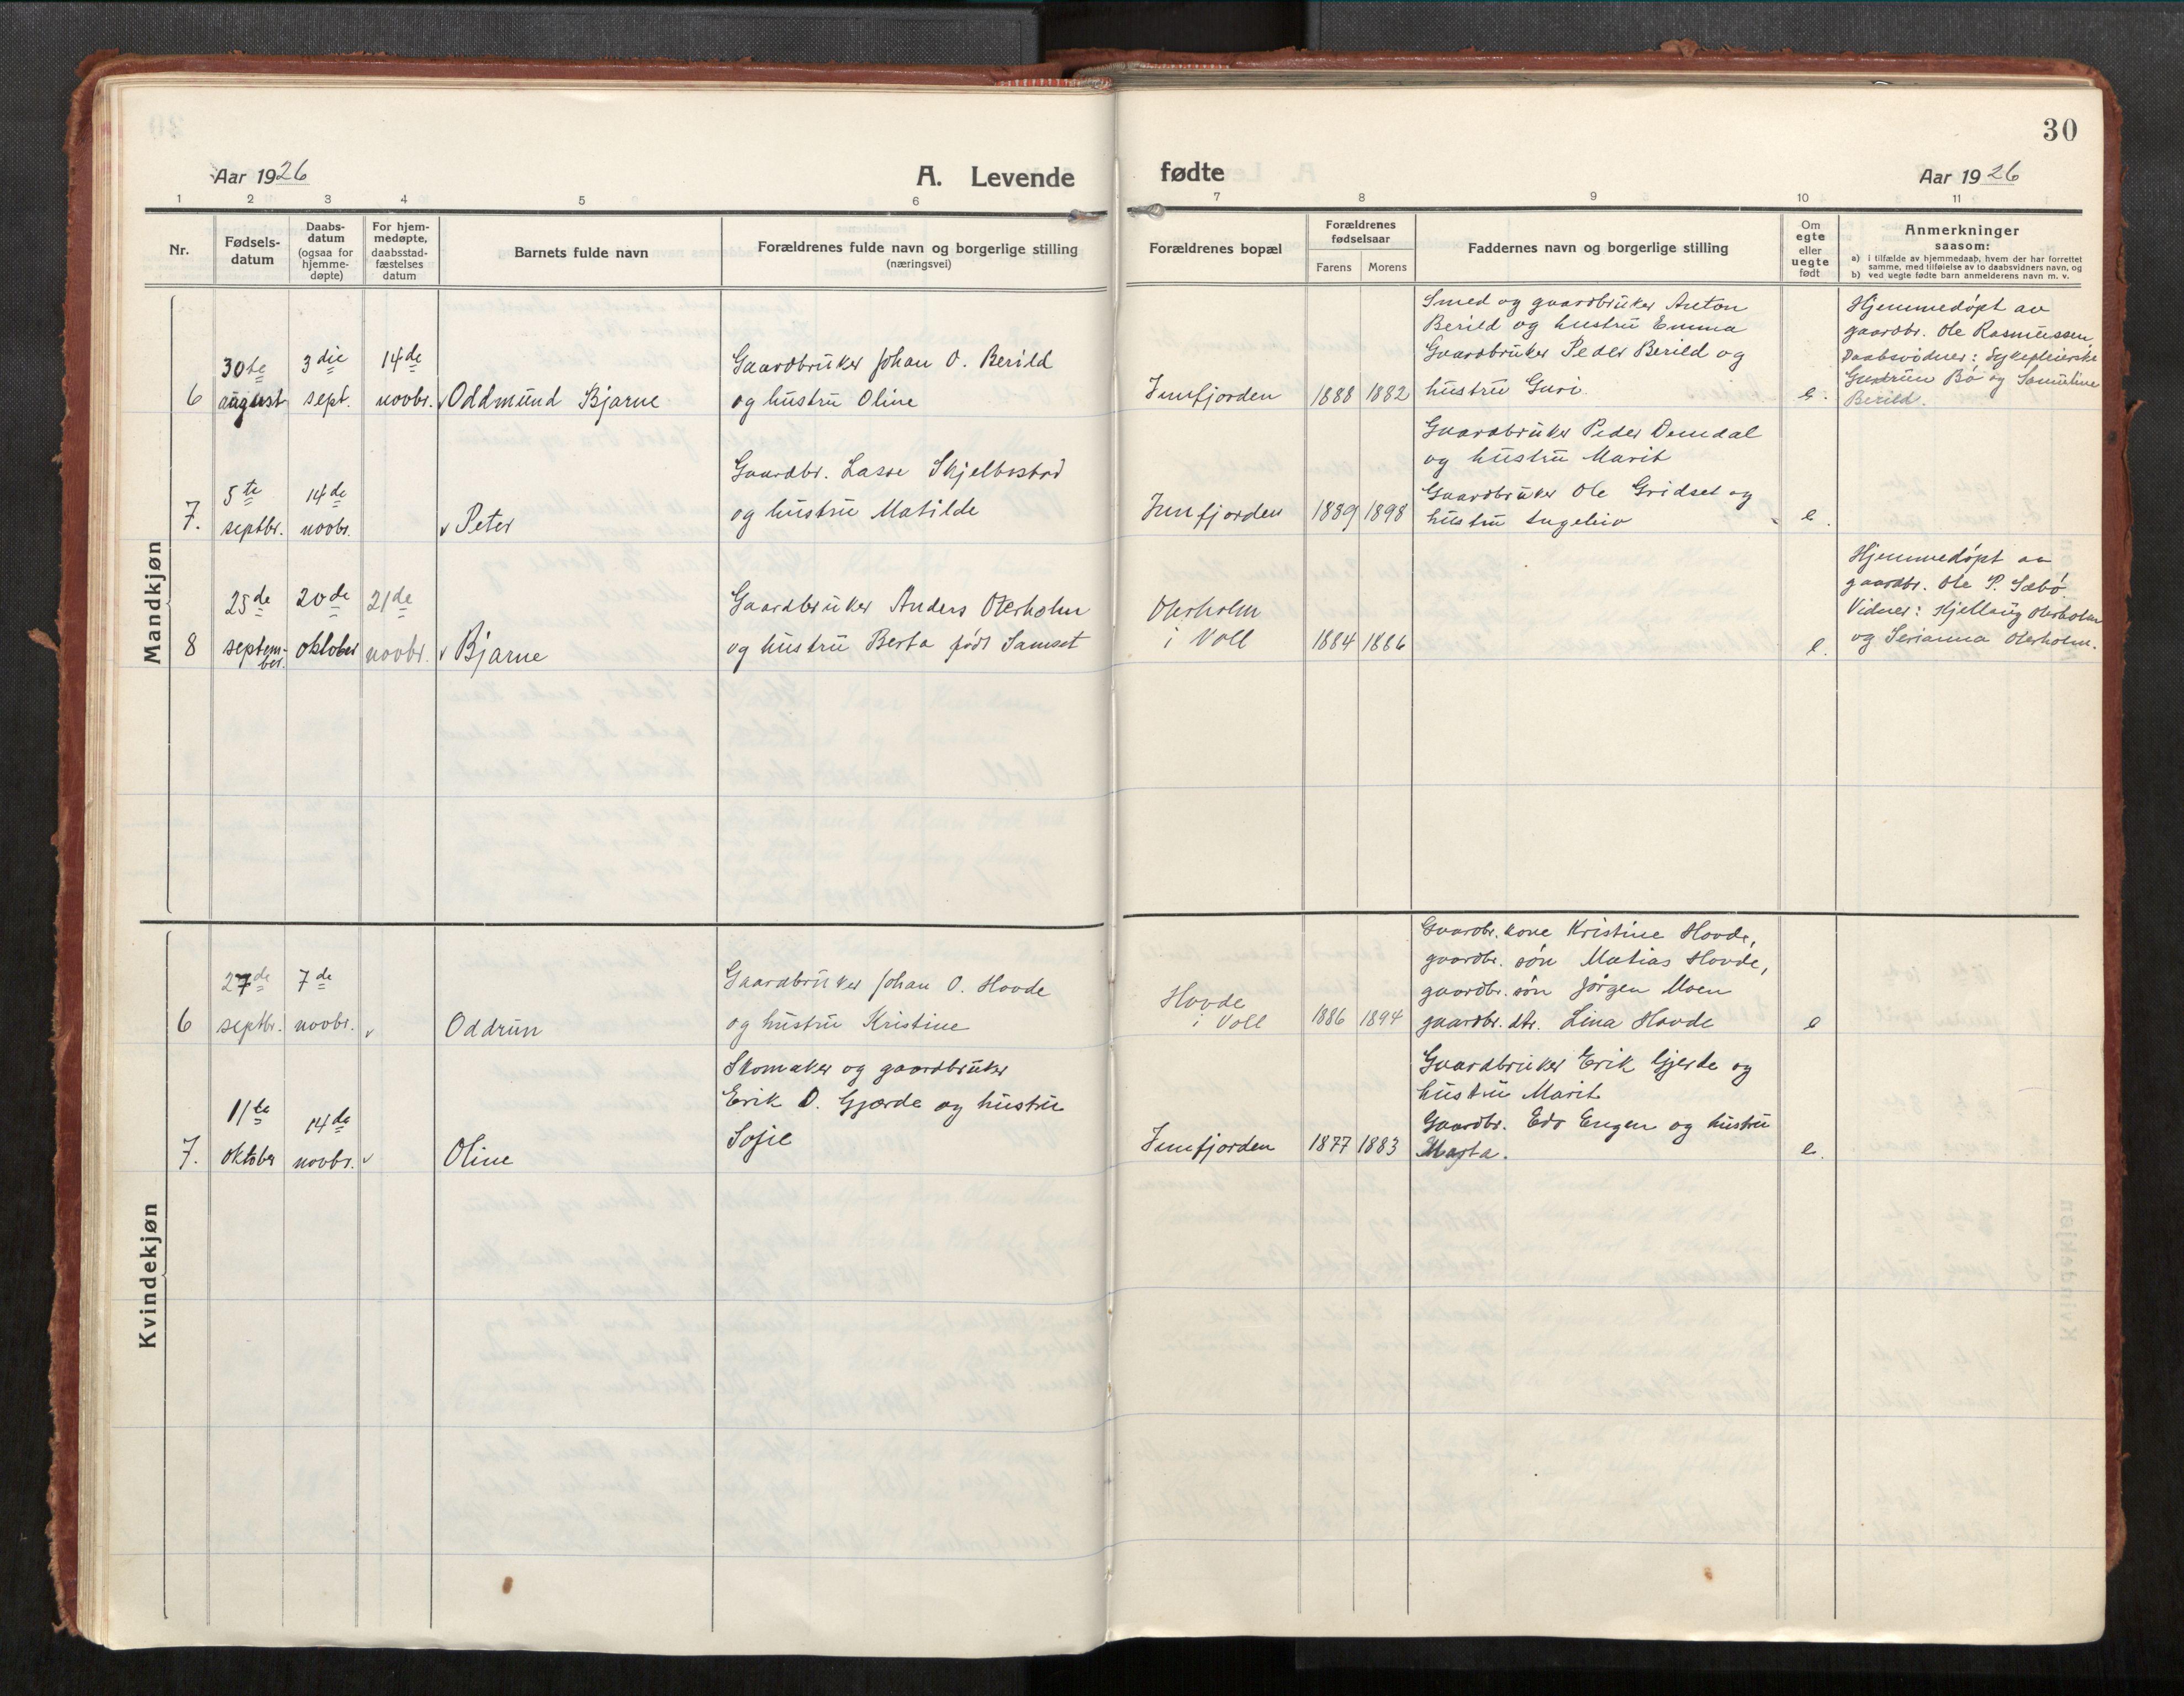 30
Aar 1926
A. Levende
fødte
Aar 1926
1 2 3 4 5 6 7 8 9 10 11
Nr.
Fødsels-
datum
Daabs-
datum
(ogsaa for
hjemme-
døpte)
For hjem-
medøpte,
daabsstad-
fæstelses
datum
Barnets fulde navn
Forældrenes fulde navn og borgerlige stilling
(næringsvei)
Forældrenes bopæl
Forældrenes
fødselsaar
Farens Morens
Faddernes navn og borgerlige stilling
Om
egte
eller
uegte
født
Anmerkninger
saasom:
a) i tilfælde av hjemmedaab, hvem der har forrettet
samme, med tilføielse av to daabsvidners navn, og
b) ved uegte fødte barn anmelderens navn m. v.
Mandkjøn
6
30te
august
3die
sept.
14de
novbr.
Oddmund Bjarne
Gaardbruker Johan O. Berild
og hustru Oline
Innfjorden
1888 1882
Smed og gaardbruker Anton
Berild og hustru Emma
Gaardbruker Peder Berild og
hustru Guri
e.
Hjemmedøpt av
gaardbr. Ole Rasmussen
Daabsvidner: Sykepleierske
Gudrun Bø og Samuline
Berild.
7.
5te
septbr.
14de
novbr.
Peter
Gaardbr. Lasse Skjelbostad
og hustru Matilde
Innfjorden
1889 1898
Gaardbruker Peder Demdal
og hustru Marit
Gaardbruker Ole Gridset og
hustru Ingeleiv
e.
8
25de
septem-
ber.
20de
oktober
21de
novbr.
Bjarne
Gaardbruker Anders Oterholm
og hustru Berta født Samset
Oterholm
i Voll
1884 1886
e.
Hjemmedøpt av
gaardbr. Ole P. Sæbø
Vidner: Kjellaug Oterholm
og Serianna Oterholm.
Kvindekjøn
6
27de
septbr.
7de
novbr.
Oddrun
Gaardbruker Johan O. Hovde
og hustru Kristine
Hovde
i Voll
1886 1894
Gaardbr. kone Kristine Hovde,
gaardbr. søn Matias Hovde,
gaardbr. søn Jørgen Moen
gaardbr. dtr. Lina Hovde
e
7.
11te
oktober
14de
novbr.
Oline
Skomaker og gaardbruker
Erik D. Gjerde og hustru
Sofie
Innfjorden
1877 1883
Gaardbruker Erik Gjerde og
hustru Marit
Gaardbr. Edv Engen og hustru
Marta.
e.